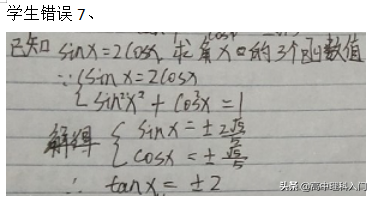 学生错误 7、
已知 sinx=2cosx, 求角x的3个三角函数值
∵ { sinx=2cosx
sin²x² + cos²x = 1
解得 { sinx = ± 2√5/5
cosx = ± √5/5
∴ tanx = ±2
头条 @高中理科入门